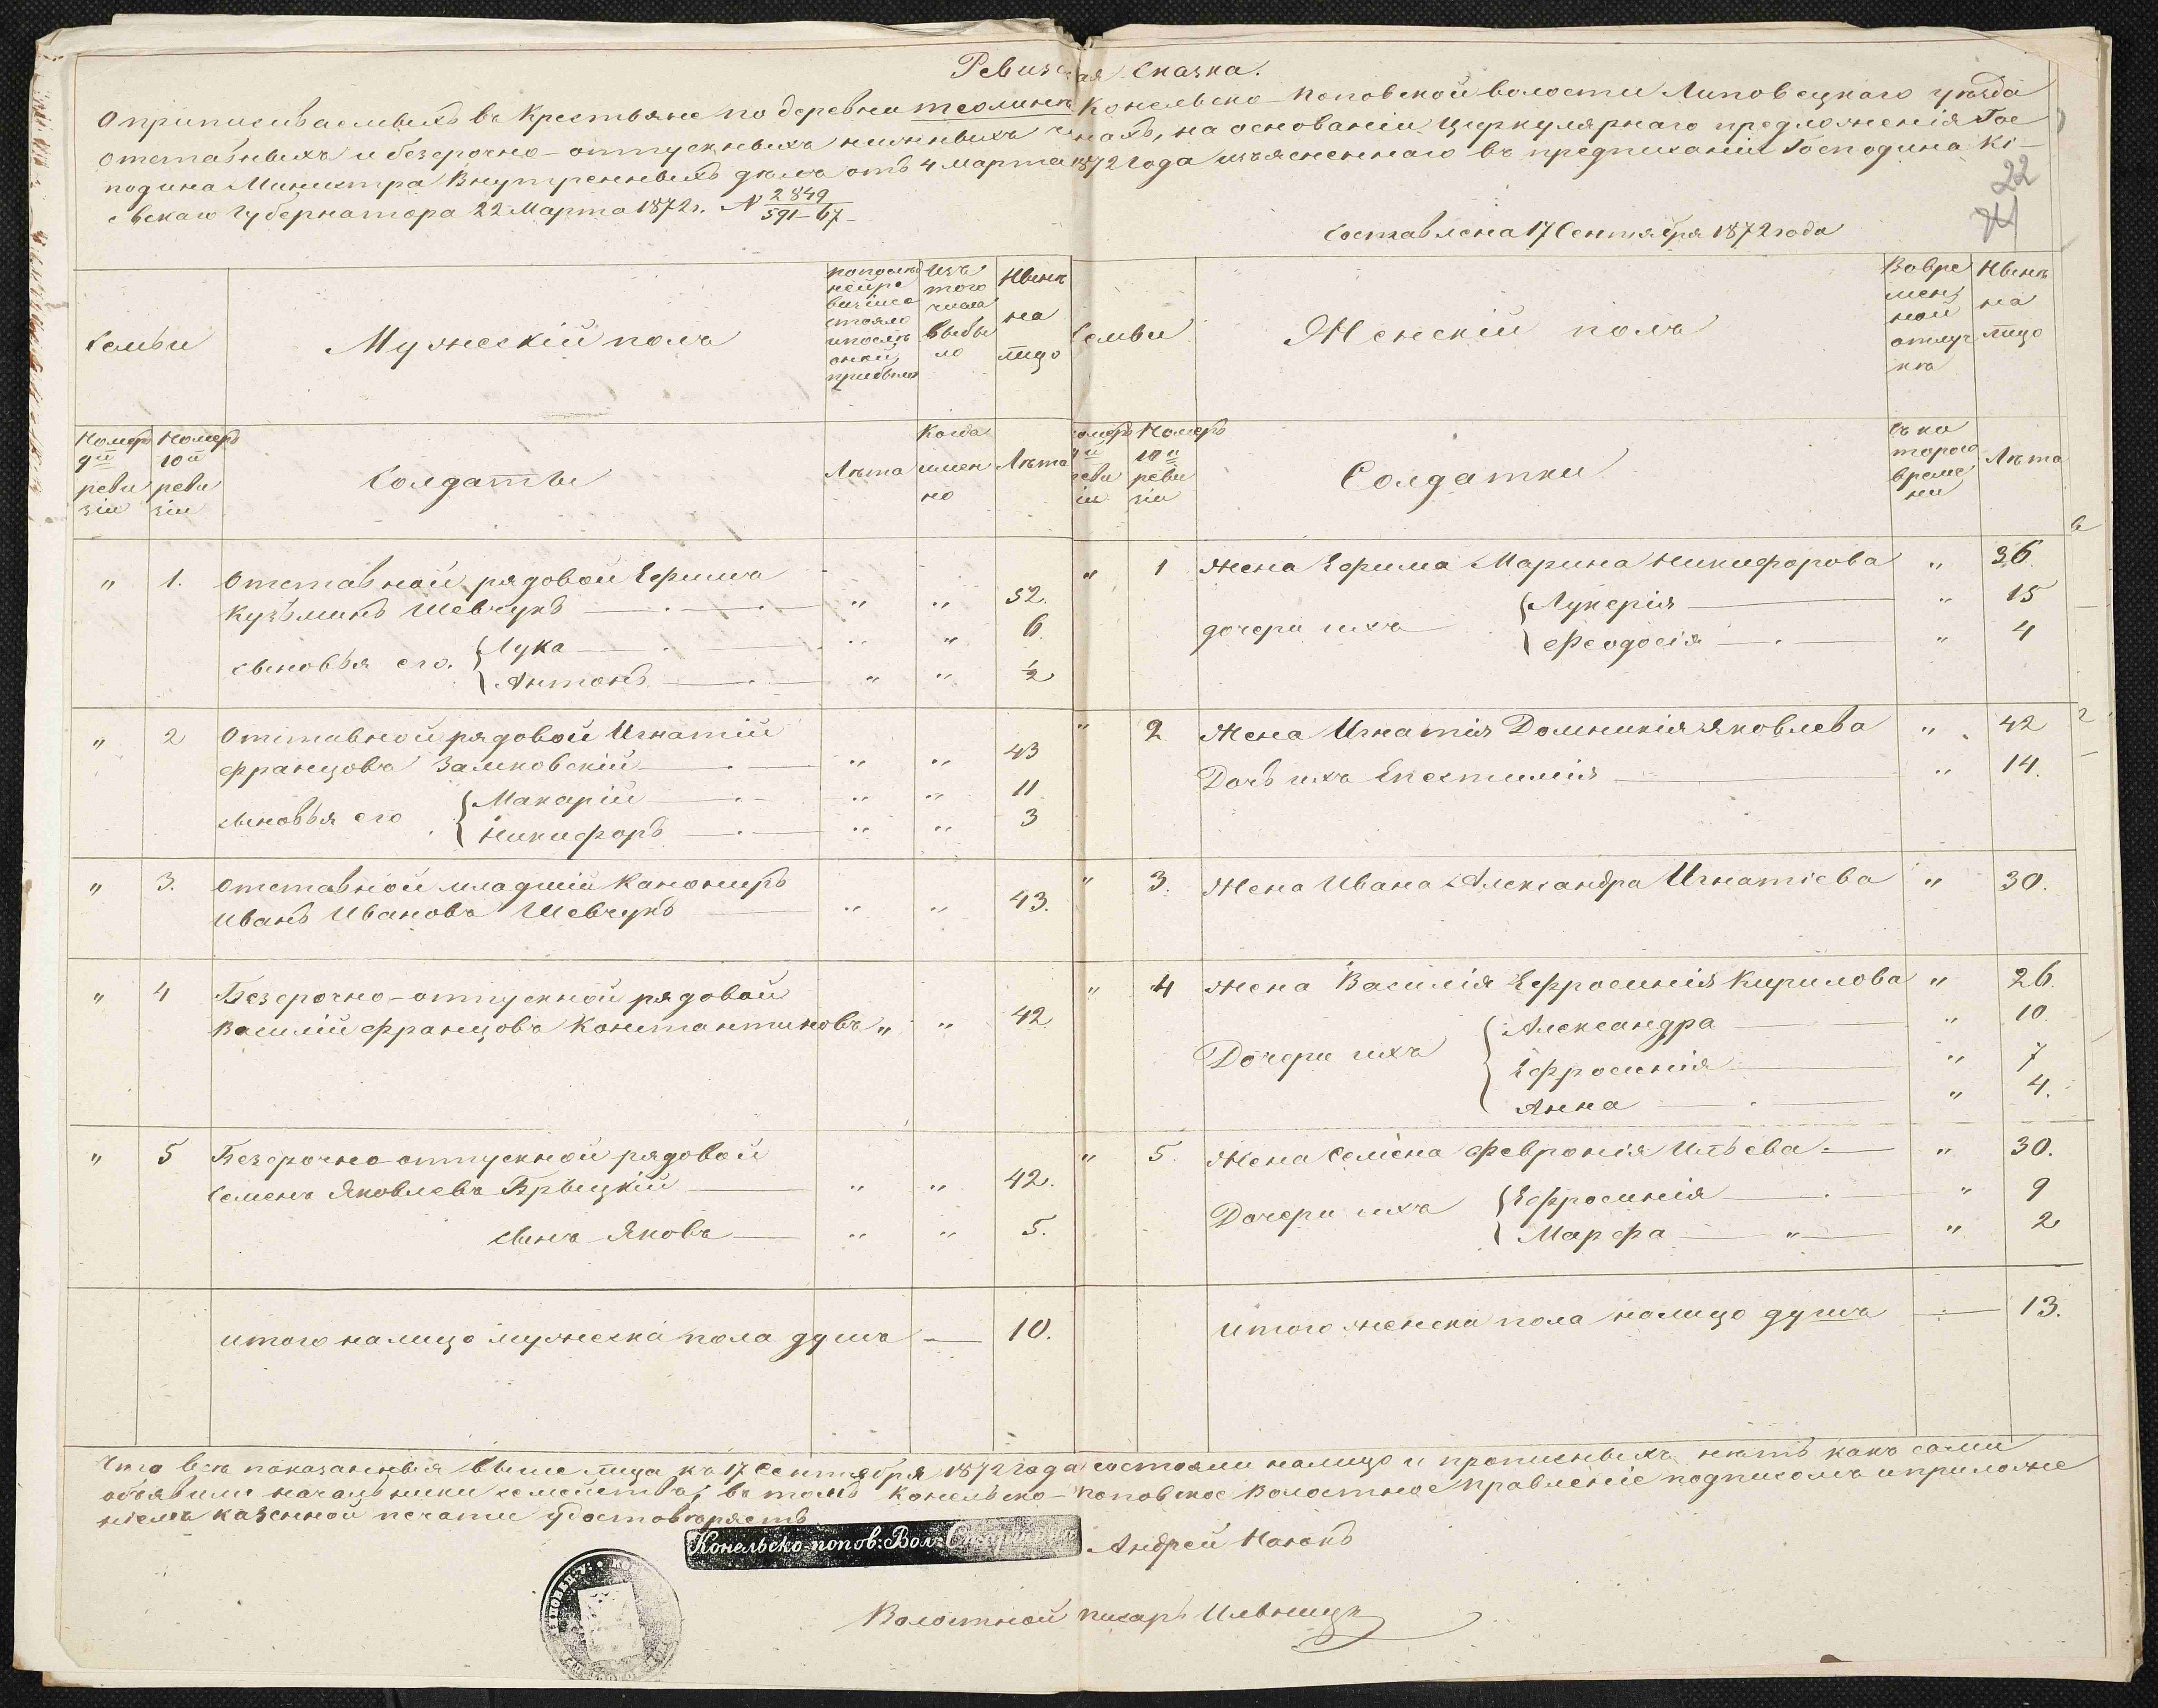 Ревизская сказка.
О приписываемыхъ въ крестьяне по деревни теолинъ Конельско-Поповской волости Липовецкаго уѣзда
отставныхъ и безсрочно-отпускныхъ нижнихъ чинахъ, на основаніи циркулярнаго предложенія Гос
подина Министра Внутреннихъ дѣлъ отъ 4 Марта 1872 года изъясненнаго въ предписаніи Господина Кі-
евскаго Губернатора 22 Марта 1872 г. № 2849
591-67
22
Составлена 17 Сентября 1872 года
Семьи
Мужескій полъ
Изъ
того
числа
выбы
ло
Нынѣ
на
лицо
Семьи
Женскій полъ
Вовре
мен
ной
отлуч
кѣ
Нынѣ
на
лицо
Номеръ
9й
реви
зіи
Номеръ
10й
реви
зіи
Солдаты
Лѣта
Когда
имен
но
Лѣта
Номеръ
10й
реви
зіи
Солдатки
Съ ко
тораго
време
ни
Лѣта
" 1. Отставной рядовой Ефимъ
Кузьминъ Шевчукъ " " 52.
сыновья его. Лука " " 6.
Антонъ " " ½
" 1 Жена Ефима Марина Никифорова " 36.
дочери ихъ Лукерія " 15
Феодосія " 4
" 2 Отставной рядовой Игнатій
Францовъ Замковскій " " 43
сыновья его Макарій " " 11.
Никифоръ " " 3
" 2 Жена Игнатія Домникія Яковлева " 42
Дочь ихъ Епестимія " 14.
" 3. Отставной младшій Канониръ
Иванъ Ивановъ Шевчукъ " " 43.
" 3. Жена Ивана Александра Игнатіева " 30.
" 4 Безсрочно-отпускной рядовой
Василій Францовъ Константиновъ " " 42.
" 4 Жена Василія Ефросинія Кирилова " 26.
Дочери ихъ Александра " 10.
Ефросинія " 7
Анна " 4.
" 5 Безсрочно отпускной рядовой
Семенъ Яковлевъ Брыцкій " " 42.
сынъ Яковъ " " 5.
" 5. Жена Семена Февронія Ильева " 30.
Дочери ихъ Ефросинія " 9
Марфа " 2
итого налицо мужеска пола душъ 10.
Итого женска пола налицо душъ 13.
Что всѣ показанныя выше лица къ 17 Сентября 1872 года состояли налицо и прописныхъ нѣтъ какъ сами
объявили начальники семейства, въ томъ Конельско-Поповское Волостное Правленіе подписомъ и приложе
ніемъ казенной печати удостовѣряетъ
Конельско-попов: Вол: Старшина
Андрей
Волостной писарь